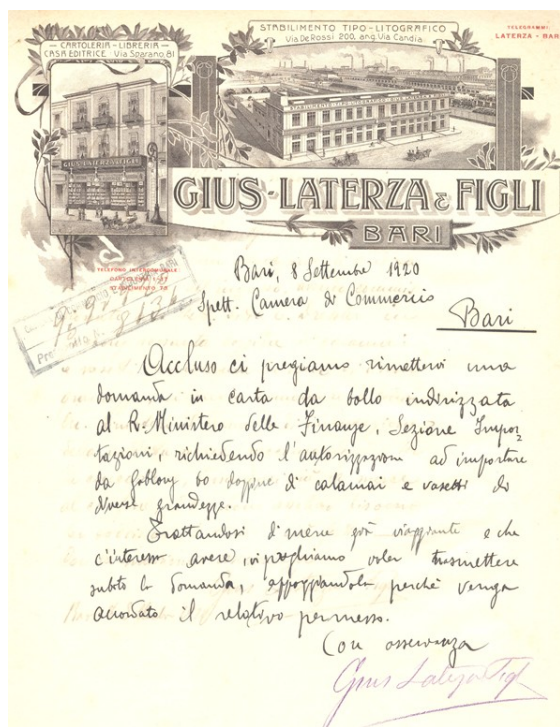 CARTOLERIA - LIBRERIA
CASA EDITRICE - Via Sparano 81
STABILIMENTO TIPO-LITOGRAFICO
Via De Rossi 200, ang. Via Candia
TELEGRAMMI:
LATERZA - BARI
GIUS. LATERZA & FIGLI
STABILIMENTO TIPO-LITOGRAFICO GIUS. LATERZA & FIGLI
GIUS. LATERZA & FIGLI
BARI
TELEFONO INTERCOMUNALE
CARTOLERIA
Bari, 8 Settembre 1920
Spett. Camera di Commercio
Bari
Accluso ci pregiamo rimettervi una
domanda in carta da bollo indirizzata
al R. Ministero delle Finanze, Sezione Impor
tazioni, richiedendo l'autorizzazione ad importare
da 60 dozzine di calamai e vasetti di
diverse grandezze.
Trattandosi di merce già viaggiante e che
c'interessa avere, vi preghiamo voler trasmettere
subito la domanda, appoggiandola perchè venga
accordato il relativo permesso.
Con osservanza
Gius Laterza Figli